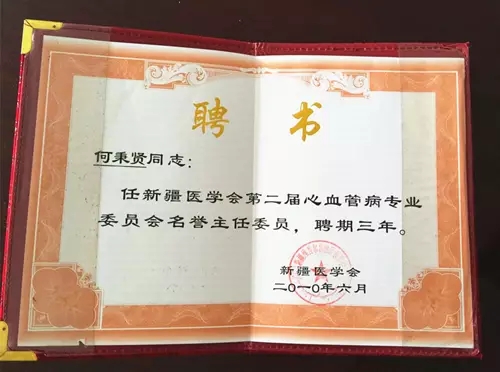 聘书
何秉贤同志：
任新疆医学会第二届心血管病专业
委员会名誉主任委员，聘期三年。
新疆医学会
二〇一〇年六月